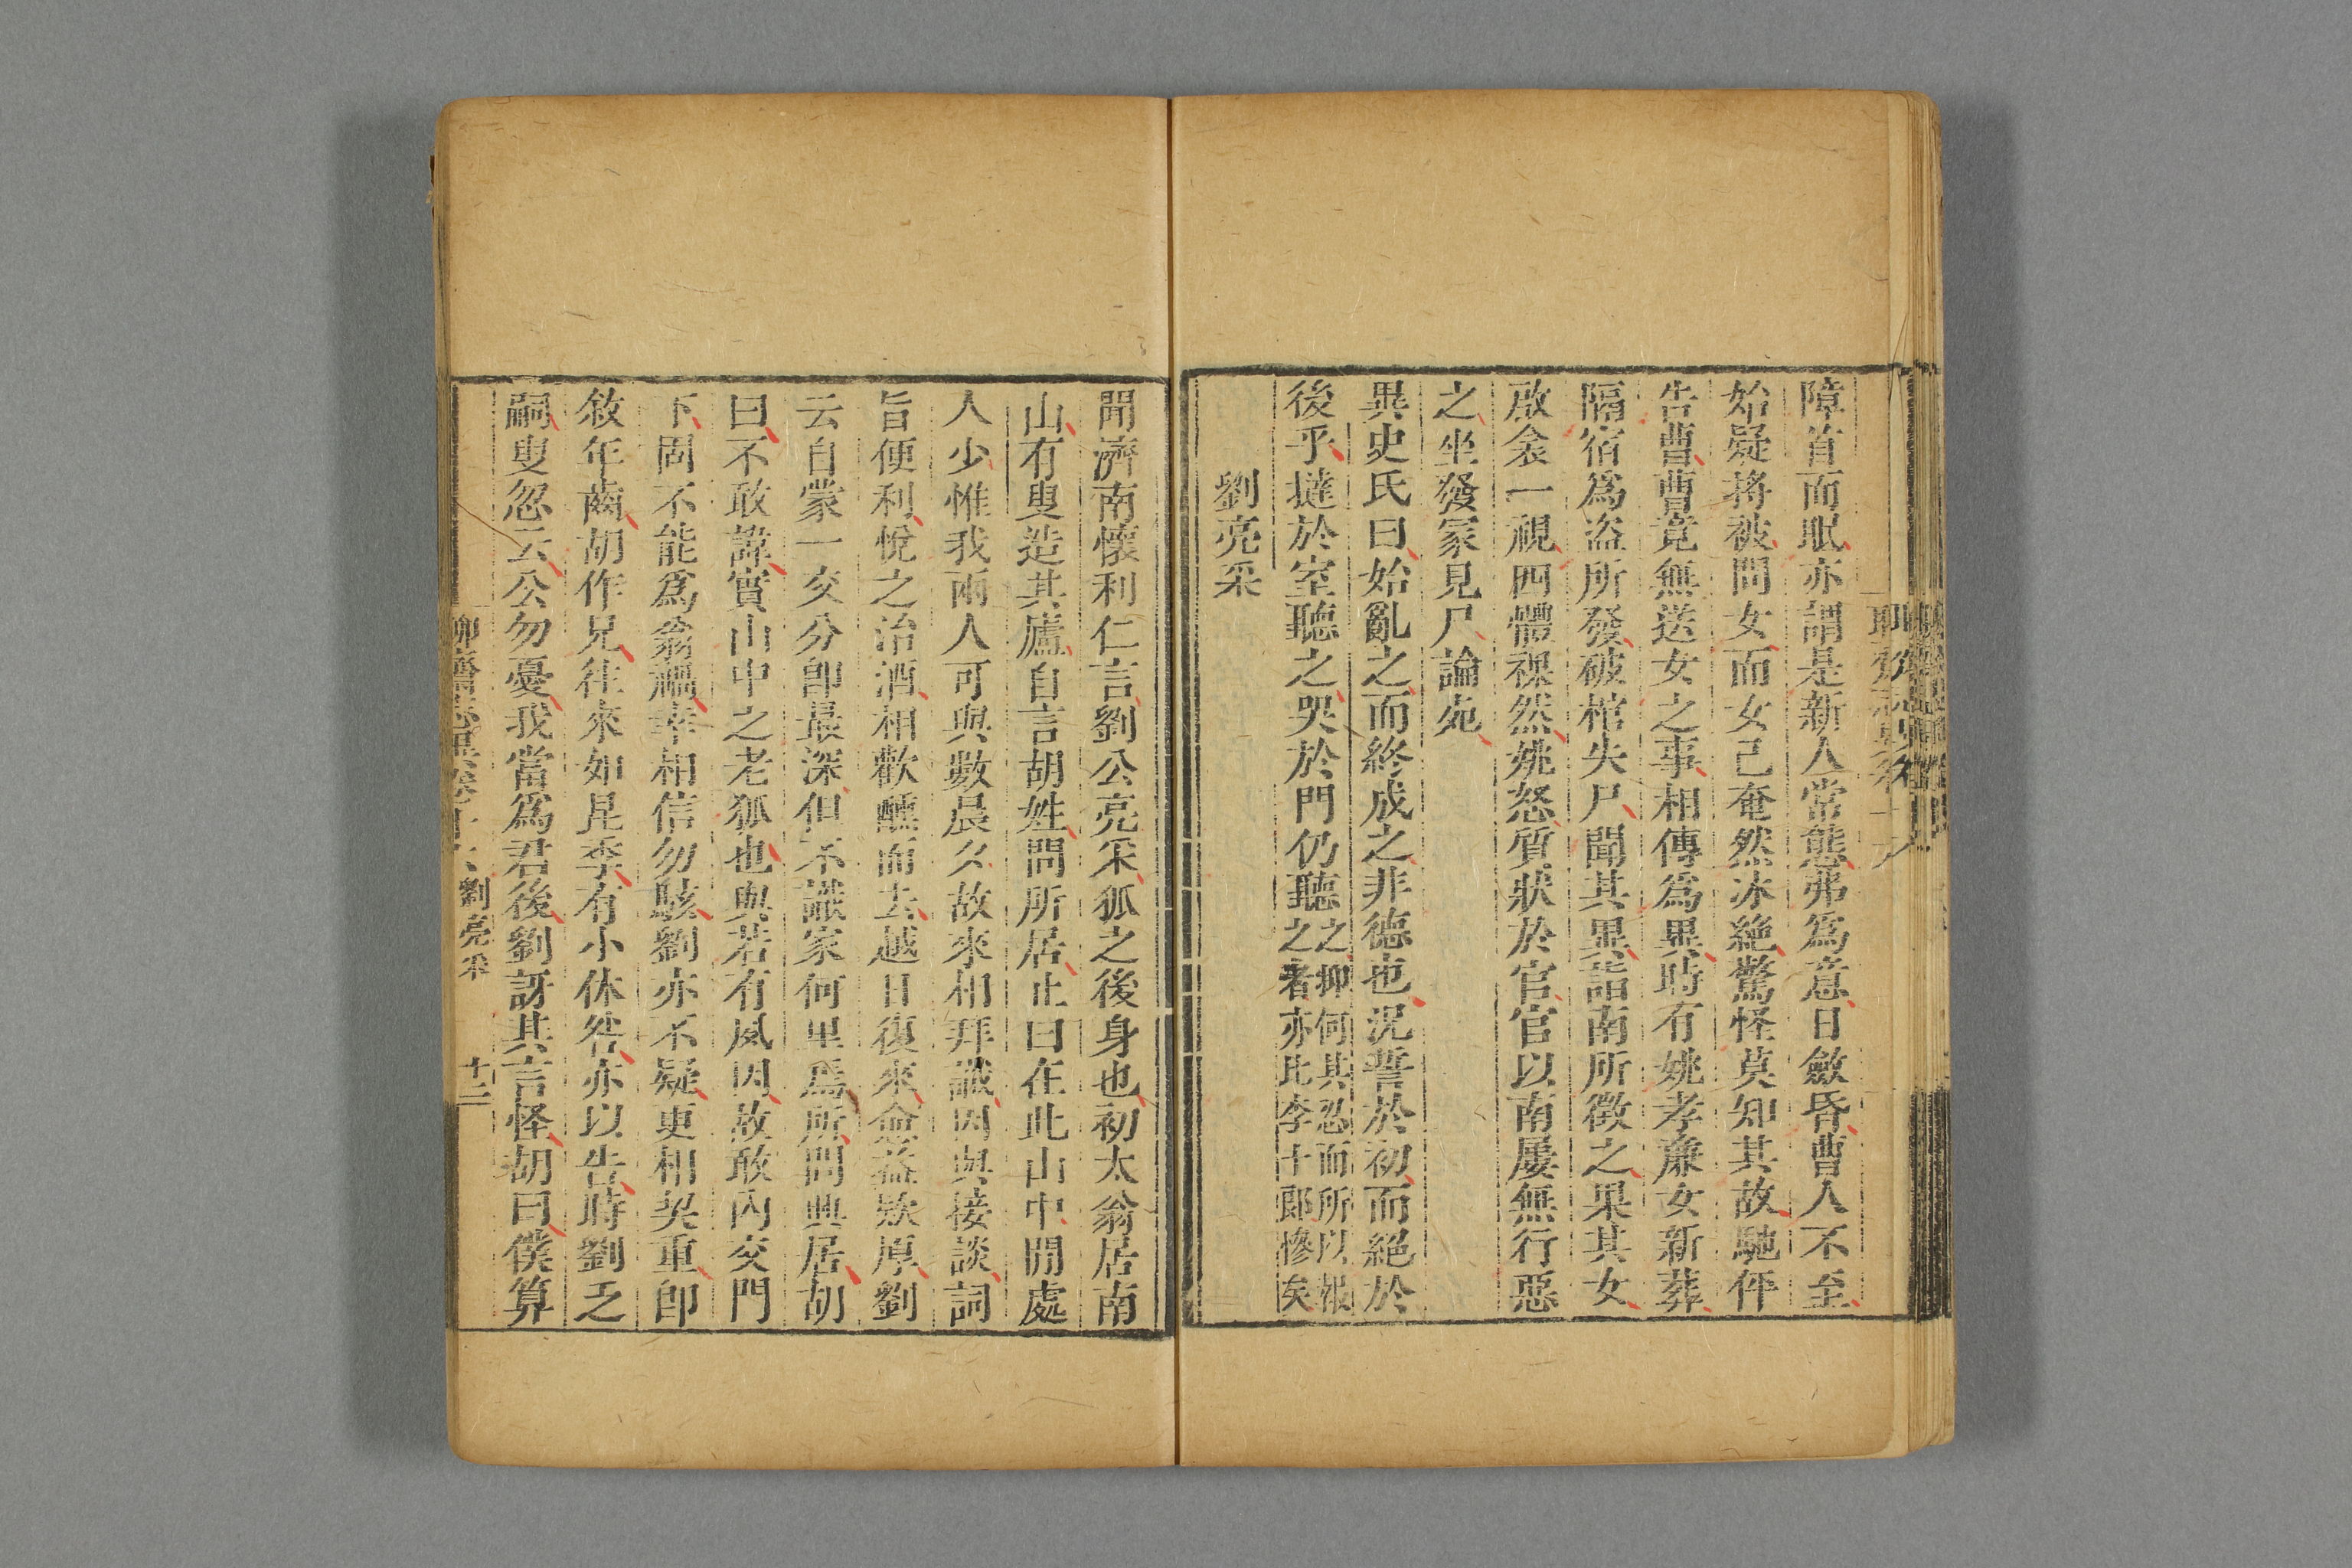 障首而眠亦謂是新人常態弗爲意日斂昏曹人不至
始疑將被問女而女已奄然冰絶驚怪莫知其故馳伻
告曹曹竟無送女之事相傳爲異時有姚孝廉女新葬
隔宿爲盜所發破棺失尸聞其異詣南所徵之果其女
啟衾一視四體裸然姚怒質狀於官官以南屢無行惡
之坐發冢見尸論宛
異史氏曰始亂之而終成之非德也況誓於初而絕於
後乎撻於室聽之哭於門仍聽之抑何其忍而所以報之者亦比李十郎慘矣
劉亮采
聞濟南懷利仁言劉公亮采狐之後身也初太翁居南
山有叟造其廬自言胡姓問所居止曰在此山中閒處
人少惟我兩人可與數晨夕故來相拜識因與接談詞
旨便利悅之治酒相歡醺而去越日復來愈益欵厚劉
云自蒙一交分卽最深但不識家何里焉所問興居胡
曰不敢諱實山中之老狐也與若有夙因故敢內交門
下固不能爲翁禍幸相信勿駭劉亦不疑更相契重卽
敘年齒胡作兄往來如昆季有小休咎亦以告時劉乏
嗣叟忽云公勿憂我當爲君後劉訝其言怪胡曰僕算
劉亮采
十二